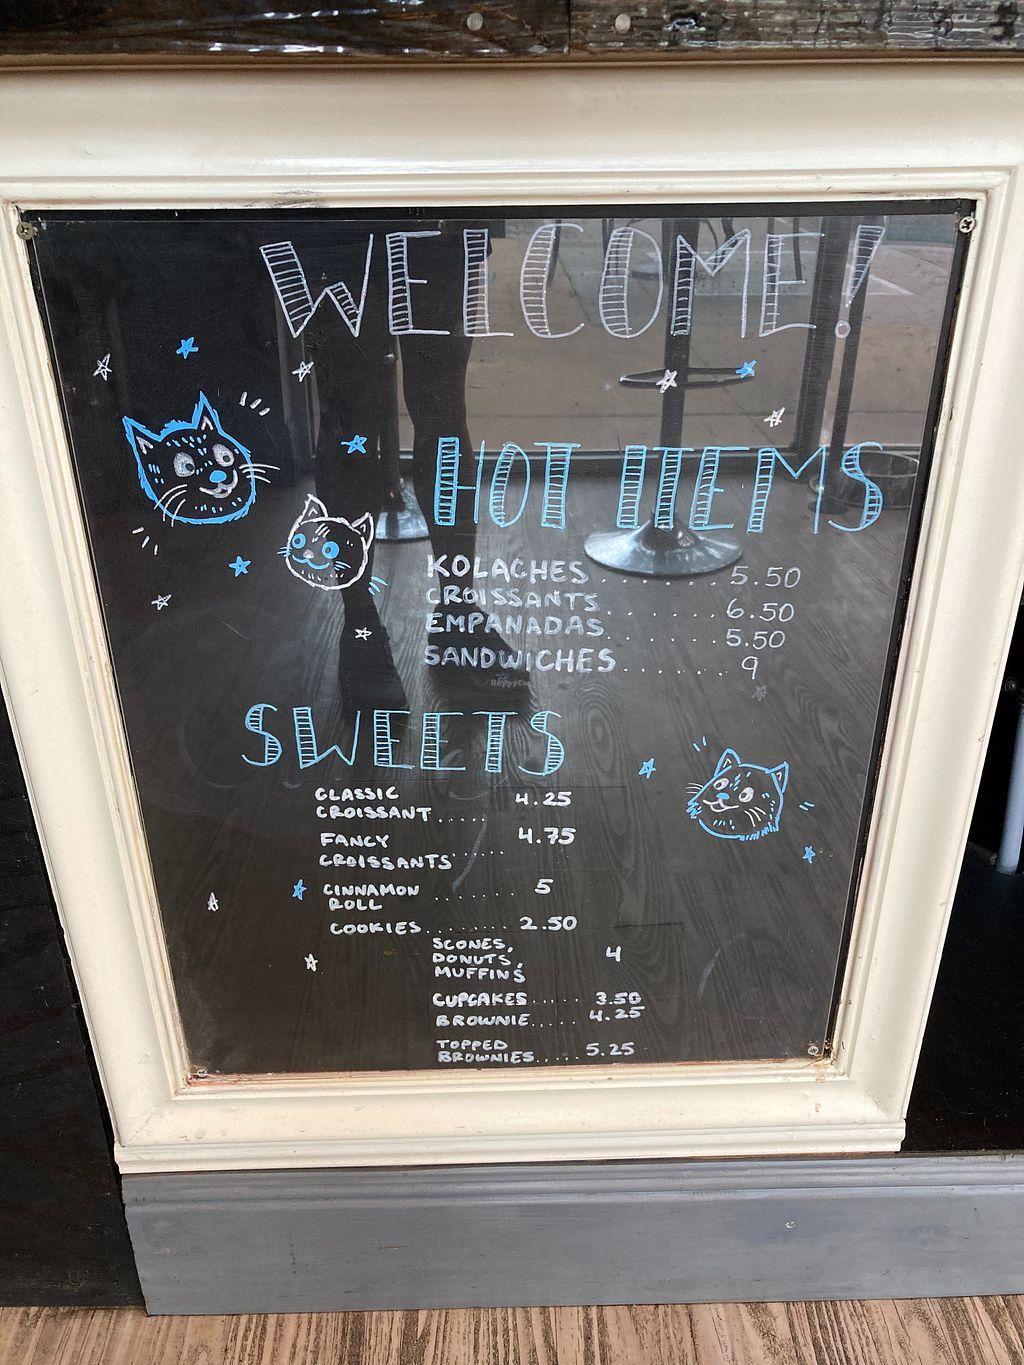 WELCOME!
HOT ITEMS
KOLACHES ........ 5.50
CROISSANTS ....... 6.50
EMPANADAS ....... 5.50
SANDWICHES ....... 9
SWEETS
CLASSIC
CROISSANT ..... 4.25
FANCY
CROISSANTS ..... 4.75
CINNAMON
ROLL ....... 5
COOKIES ........ 2.50
SCONES,
DONUTS, 4
MUFFINS
CUPCAKES ..... 3.50
BROWNIE ..... 4.25
TOPPED
BROWNIES ..... 5.25